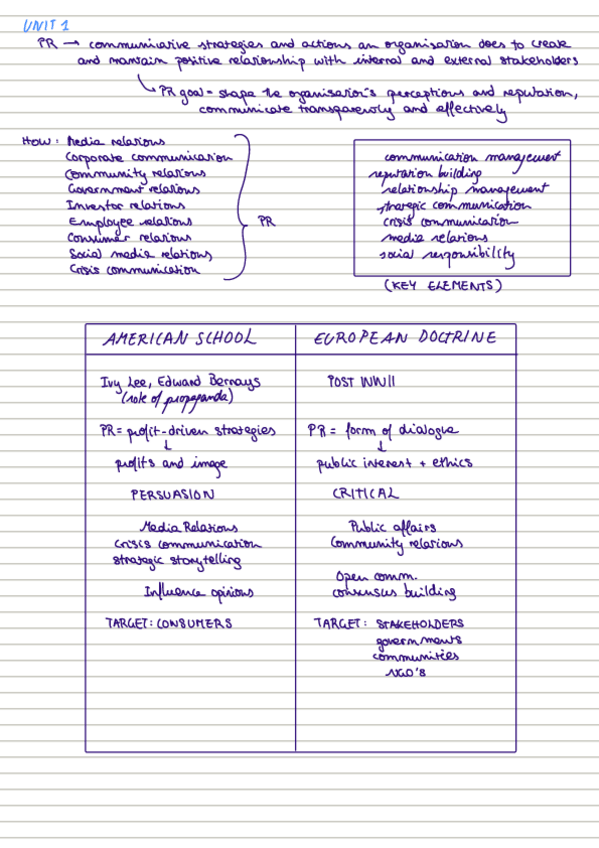 UNIT 1
PR → communicative strategies and actions an organisation does to create
and mantain positive relationship with internal and external stakeholders
PR goal = shape the organisation's perceptions and reputation,
communicate transparently and effectively
HOW: Media relations
Corporate communication
Community relations
Government relations
Investor relations
Employee relations
Consumer relations
Social media relations
Crisis communication
PR
communication management
reputation building
relationship management
strategic communication
crisis communication
media relations
social responsibility
(KEY ELEMENTS)
AMERICAN SCHOOL
Ivy Lee, Edward Bernays
(role of propaganda)
PR = profit-driven strategies
↓
profits and image
PERSUASION
Media Relations
Crisis communication
strategic storytelling
Influence opinions
TARGET: CONSUMERS
EUROPEAN DOCTRINE
POST WWII
PR = form of dialogue
↓
public interest + ethics
CRITICAL
Public affairs
Community relations
Open comm.
consensus building
TARGET: STAKEHOLDERS
governments
communities
NGO'S